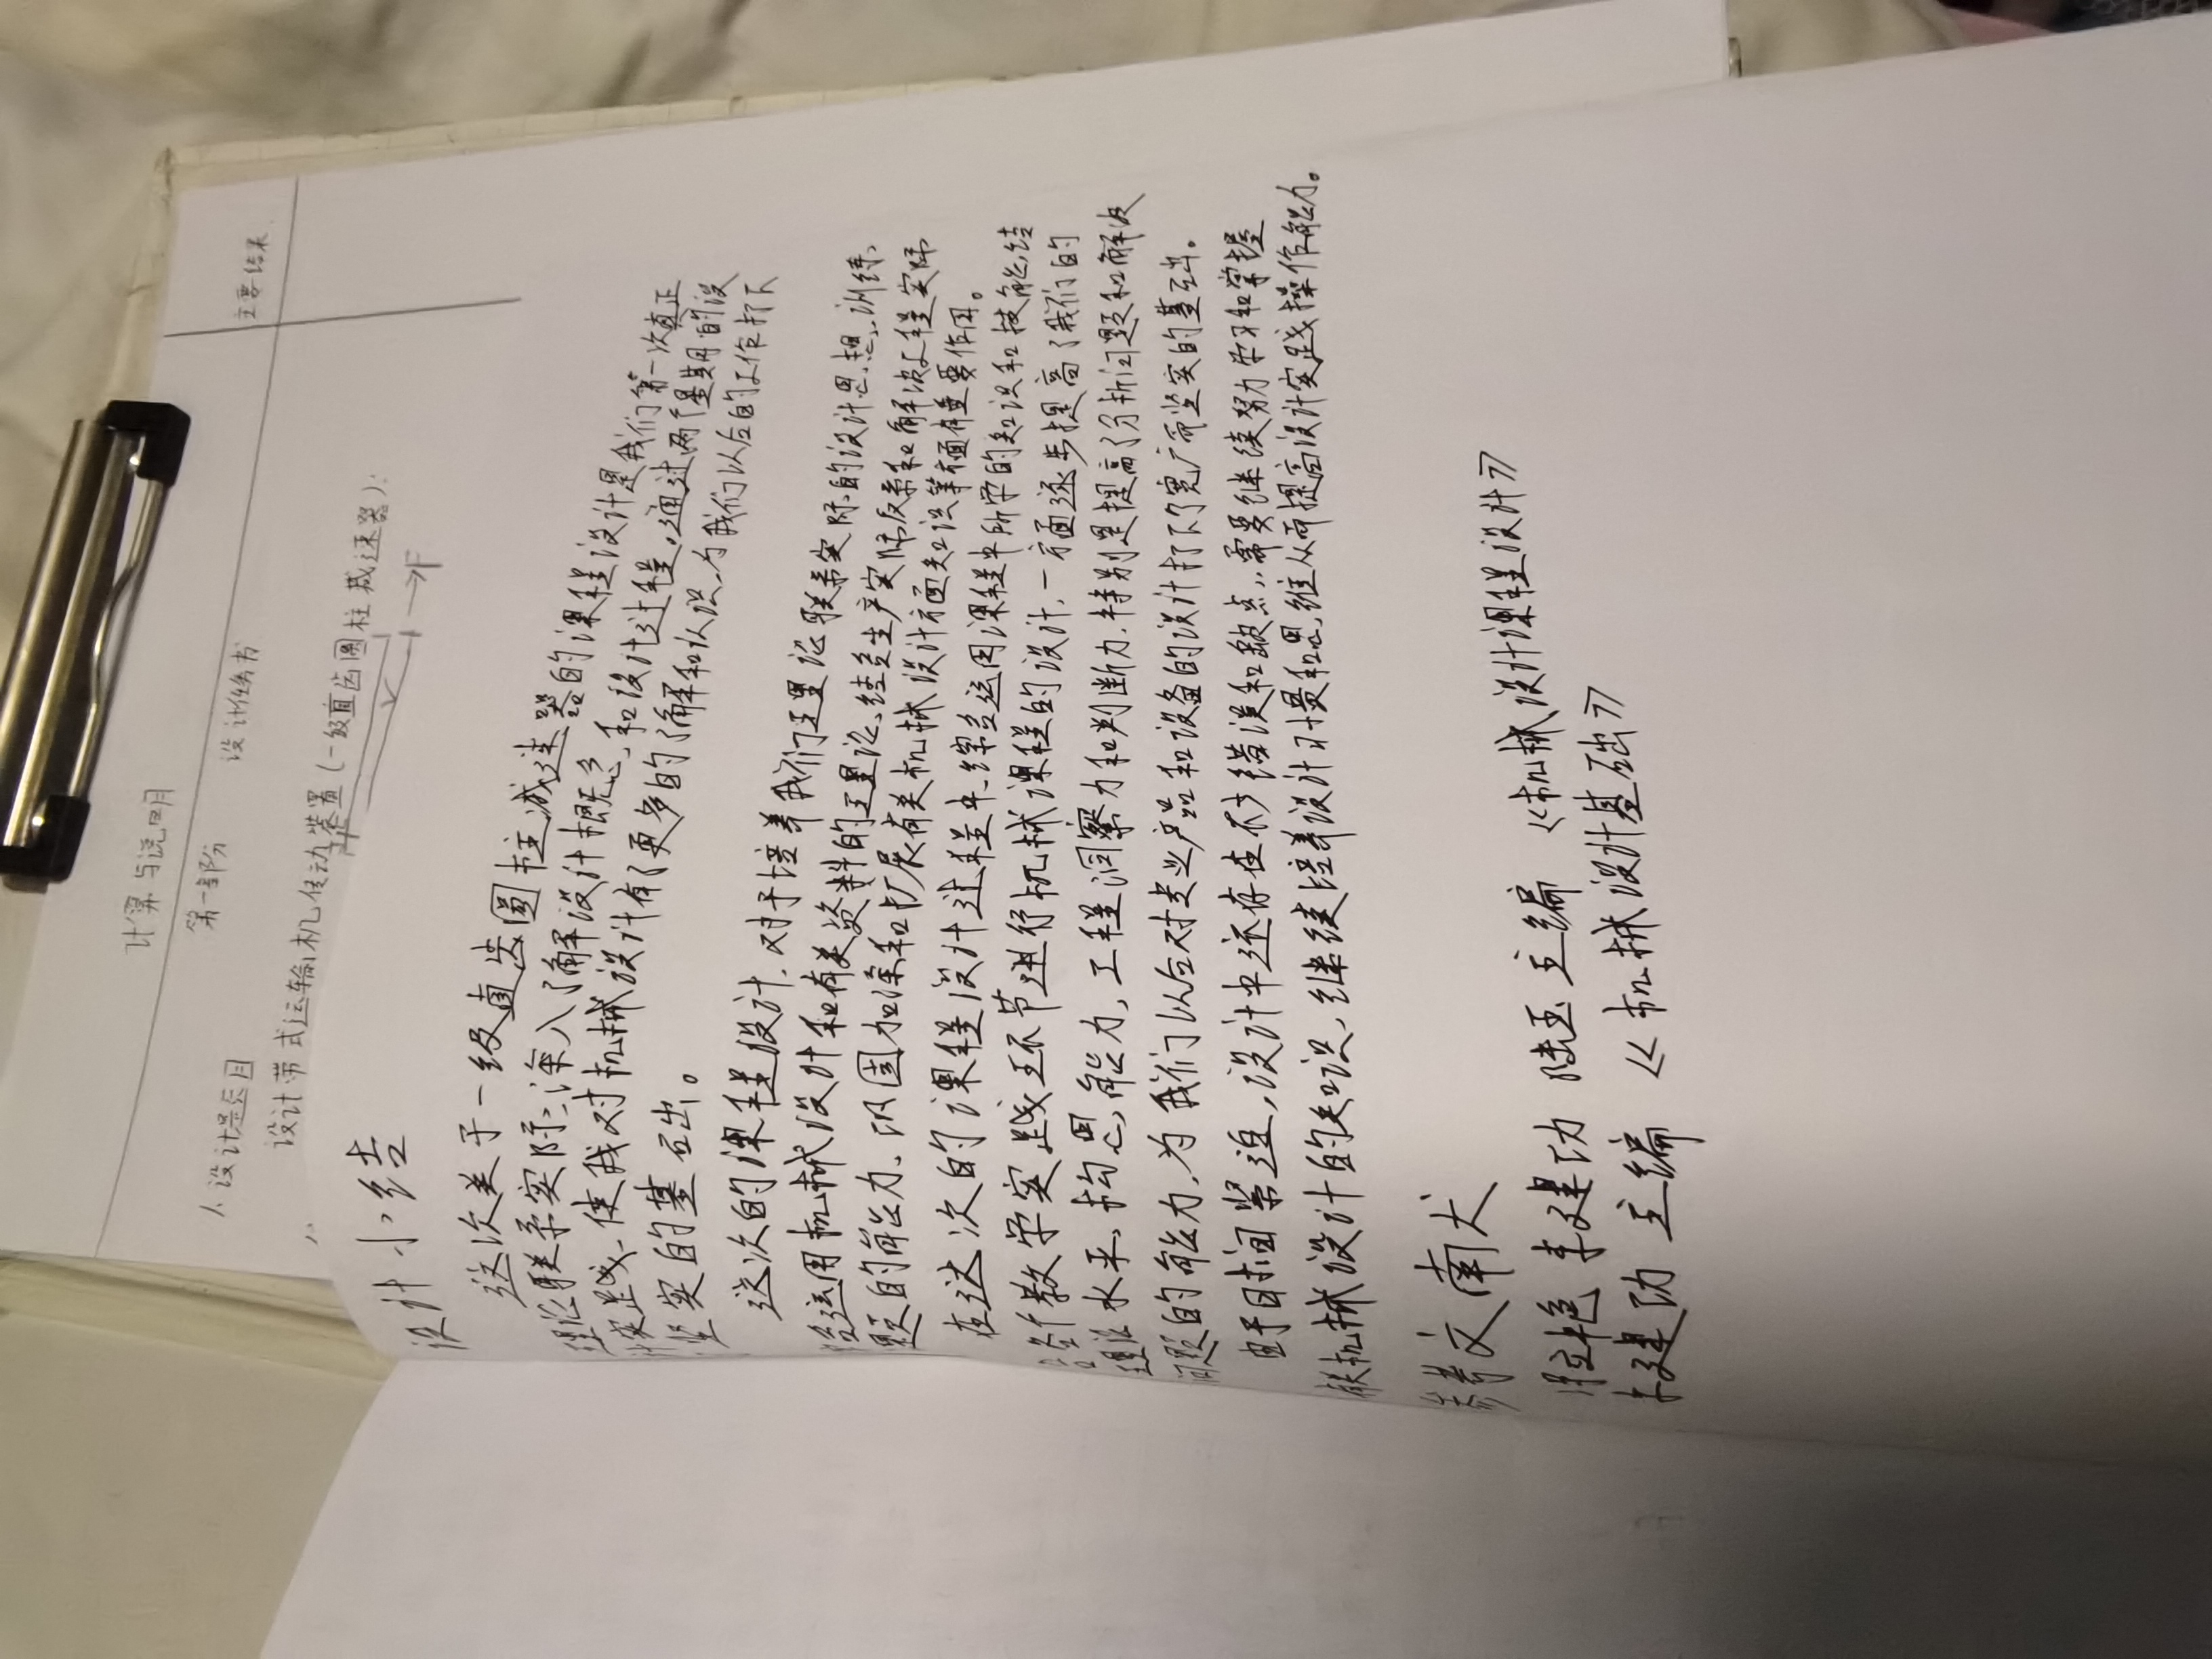 计算与说明
主要结果
第一部份 设计任务书
1、设计题目
设计带式运输机传动装置(一级直齿圆柱减速器):
F
设计小结
这次关于一级直齿圆柱减速器的课程设计是我们第一次真正
理论联系实际、深入了解设计概念和设计过程,通过两个星期的设
计实践,使我对机械设计有了更多的了解和认识、为我们以后的工作打下
坚实的基础。
这次的课程设计,对于培养我们理论联系实际的设计思想、训练、
综合运用机械设计和有关资料的理论、结合生产实际反系和解决工程实际
问题的能力、巩固加深和扩展有关机械设计方面知识等方面有重要作用。
在这次的课程设计过程中、综合运用课程中所学的知识和技能,结
合各个教学实践环节进行机械课程的设计,一方面逐步提高了我们的
理论水平、构思能力,工程洞察力和判断力,特别是提高了分析问题和解决
问题的能力,为我们以后对专业产品和设备的设计打下了宽广而坚实的基础。
由于时间紧迫,设计中还存在不少错误和缺点,需要继续努力学习和掌握
有关机械设计的知识,继续培养设计习惯和思维从而提高设计实践操作能力。
参考文献
李建功 陆玉主编 《机械设计课程设计》
李建功主编 《机械设计基础》